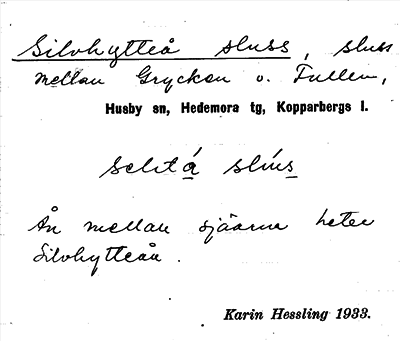 Silvhytteå sluss, sluss
mellan Grycken o. Fullen,
Husby sn, Hedemora tg, Kopparbergs l.
selıtá slíus
Ån mellan sjöarna heter
Silvhytteån.
Karin Hessling 1933.